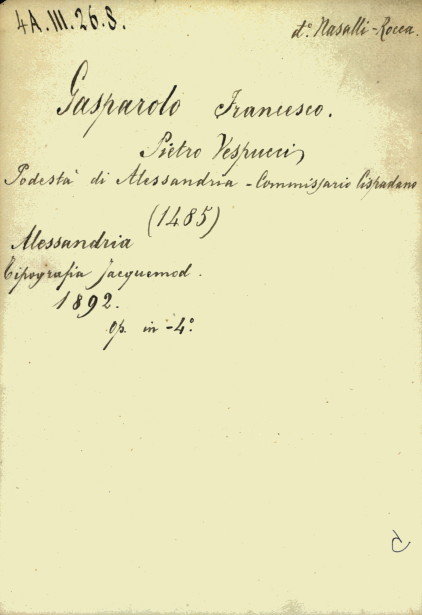 4A.III.26.S.
d°. Nasalli-Rocca.
Gasparolo Francesco.
Pietro Vespucci
Podestà di Alessandria - Commissario Cispadano
(1485)
Alessandria
Tipografia Jacquemod.
1892.
Op. in -4°.